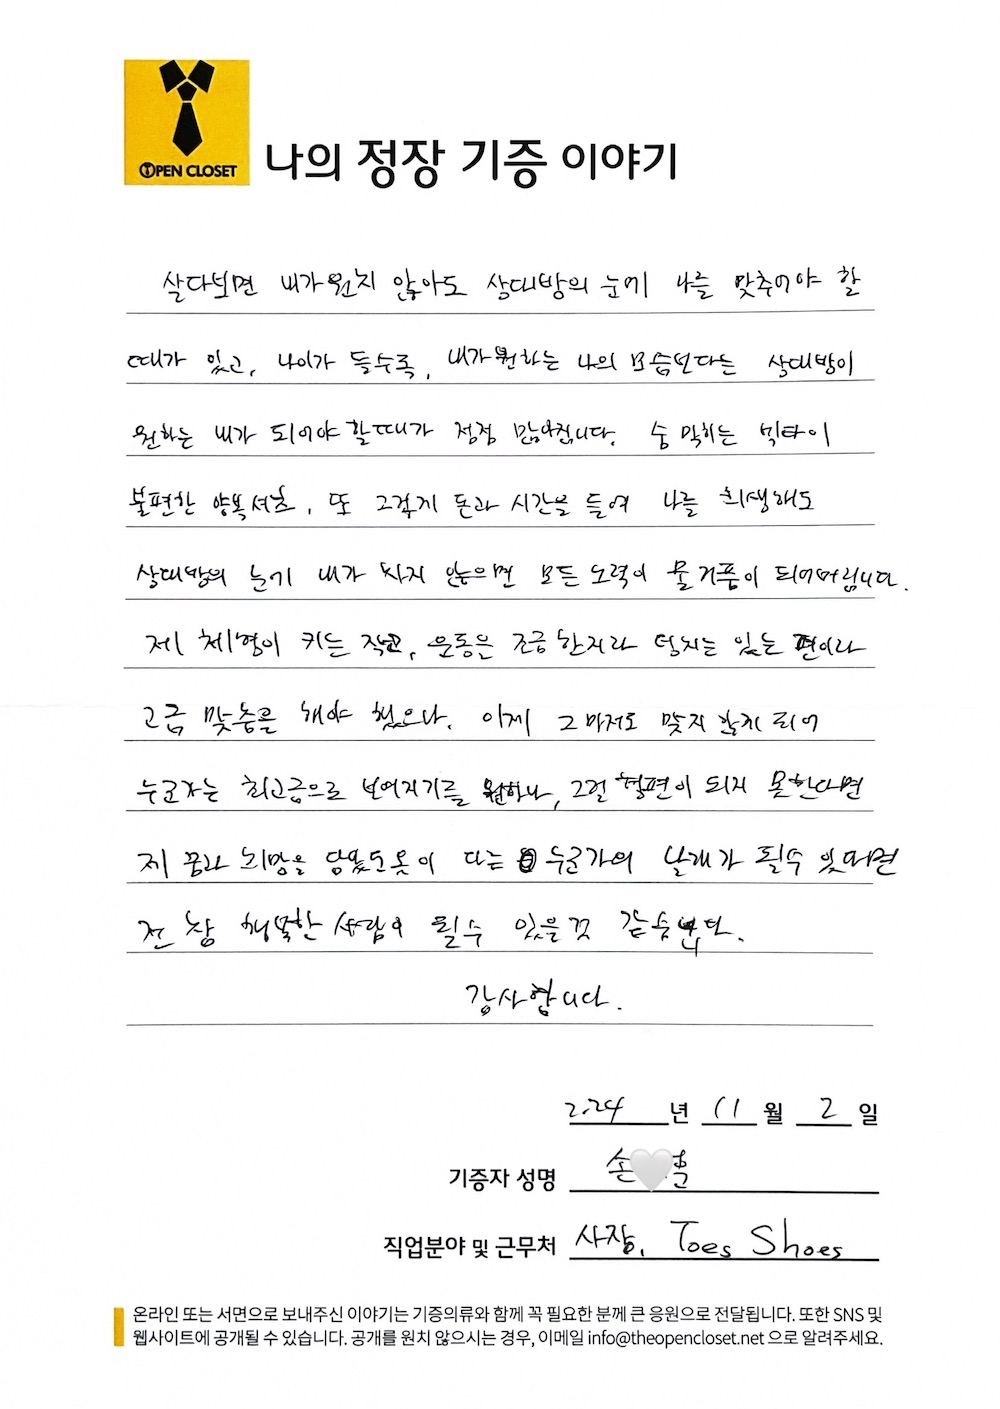 OPEN CLOSET
나의 정장 기증 이야기
살다보면 내가 원치 않아도 상대방의 눈에 나를 맞추어야 할
때가 있고, 나이가 들수록, 내가 원하는 나의 모습보다는 상대방이
원하는 내가 되어야 할때가 점점 많아집니다. 숨 막히는 넥타이
불편한 양복셔츠, 또 그렇게 돈과 시간을 들여 나를 희생해도
상대방의 눈에 내가 차지 않으면 모든 노력이 물거품이 되어버립니다.
제 체형이 키는 작고, 운동은 조금 한지라 덩치는 있는 편이라
고급 맞춤을 해야 했으나, 이제 그마저도 맞지 않게 되어
누군가는 최고급으로 보여지기를 원하나, 그럴 형편이 되지 못한다면
제 꿈과 희망을 담았던 옷이 다른 누군가의 날개가 될수 있다면
전 참 행복한 사람이 될수 있을것 같습니다.
감사합니다.
2024 년 11 월 2 일
기증자 성명 손 훈
직업분야 및 근무처 사장, Toes Shoes
온라인 또는 서면으로 보내주신 이야기는 기증의류와 함께 꼭 필요한 분께 큰 응원으로 전달됩니다. 또한 SNS 및
웹사이트에 공개될 수 있습니다. 공개를 원치 않으시는 경우, 이메일 info@theopencloset.net 으로 알려주세요.